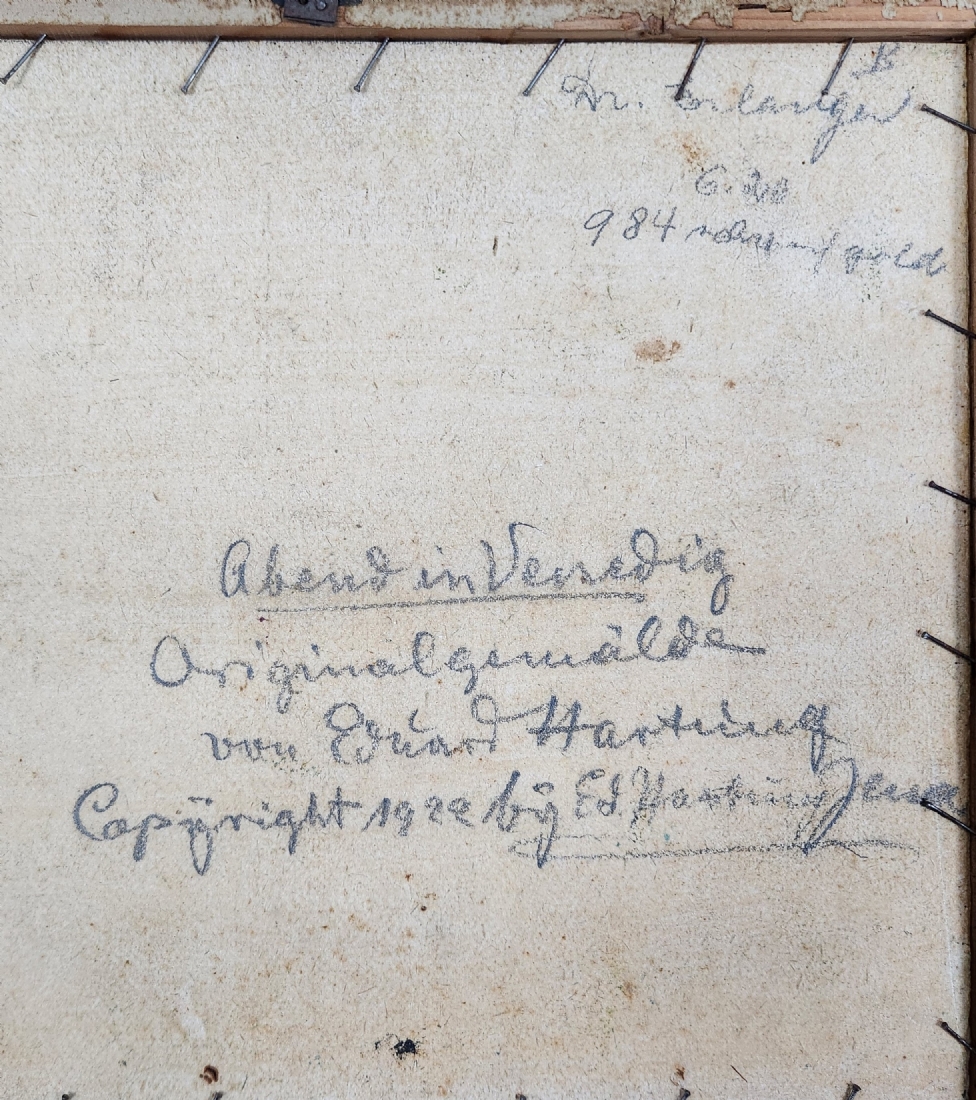 Dr. Erlanger
984 gold
Abend in Venedig
Originalgemälde
von Eduard Harting
Copÿright 1922 bÿ Ed. Harting Jena